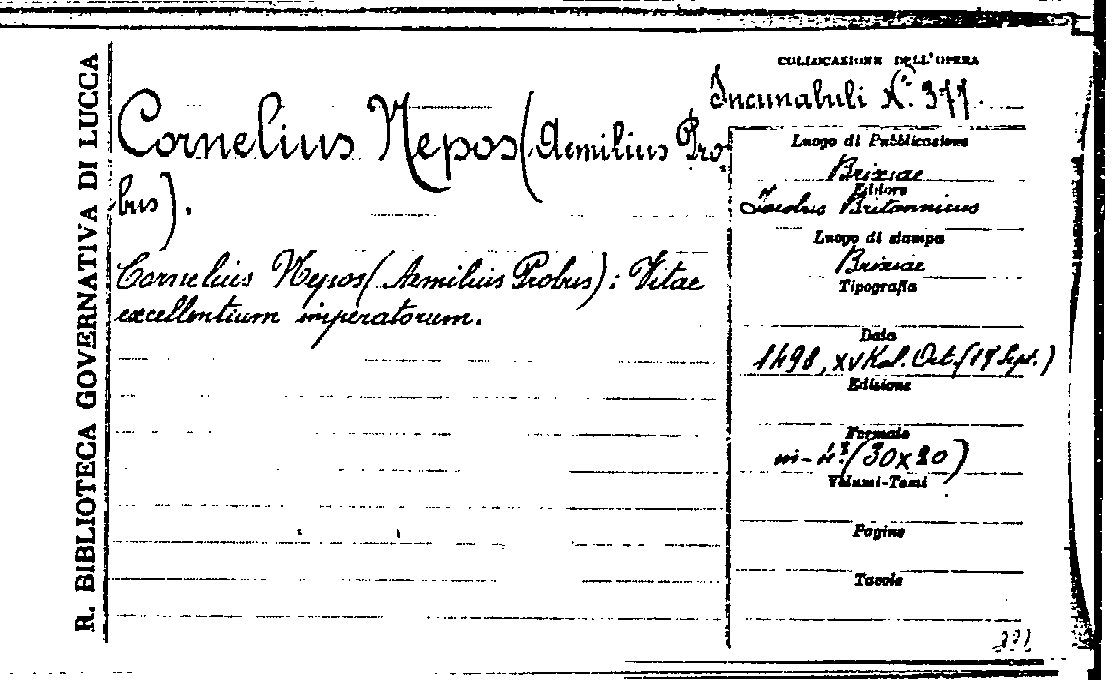 R. BIBLIOTECA GOVERNATIVA DI LUCCA
Cornelius Nepos (Aemilius Pro
bus).
Cornelius Nepos (Aemilius Probus): Vitae
excellentium imperatorum.
COLLOCAZIONE DELL'OPERA
Incunabuli N.º 377.
Luogo di Pubblicazione
Brixiae
Editore
Jacobus Britannicus
Luogo di stampa
Brixiae
Tipografia
Data
1498, XV Kal. Oct. (17 Sept.)
Edizione
Formato
in-4º (30x20)
Volumi-Tomi
Pagine
Tavole